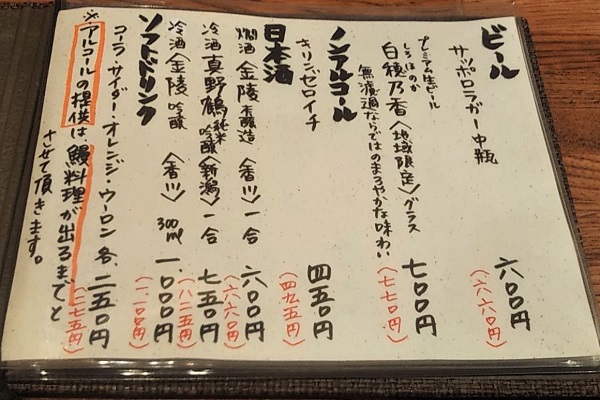 ビール
サッポロラガー中瓶 六〇〇円
(六六〇円)
プレミアム生ビール
しろほのか
白穂乃香〈地域限定〉グラス 七〇〇円
無濾過ならではのまろやかな味わい (七七〇円)
ノンアルコール
キリンゼロイチ 四五〇円
(四九五円)
日本酒
燗酒 金陵 本醸造〈香川〉一合 六〇〇円
(六六〇円)
冷酒 真野鶴 純米吟醸〈新潟〉一合 七五〇円
(八二五円)
冷酒 金陵 吟醸〈香川〉300ml 一、〇〇〇円
(一、一〇〇円)
ソフトドリンク
コーラ・サイダー・オレンジ・ウーロン 各、二五〇円
(二七五円)
※アルコールの提供は、鰻料理が出るまでと
させて頂きます。